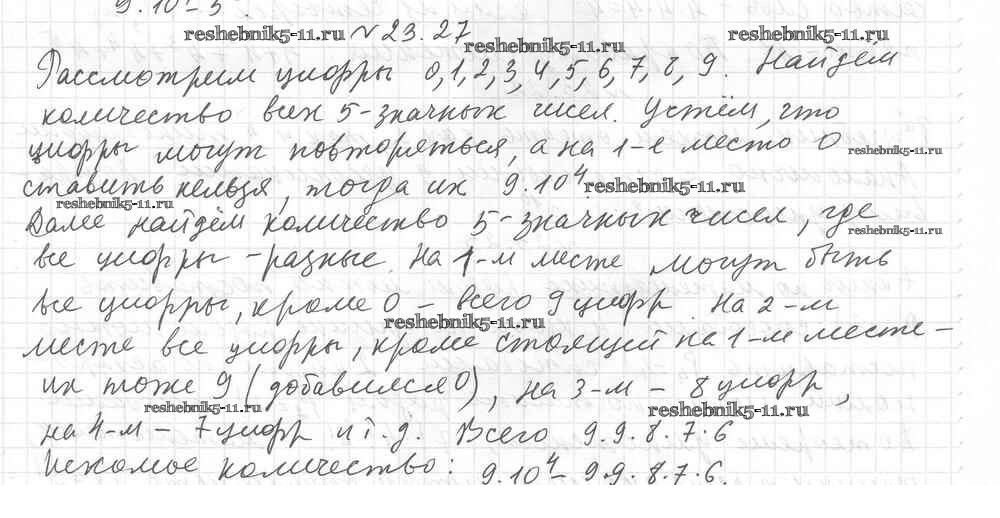 9·10⁴-5⁵.
reshebnik5-11.ru №23.27 reshebnik5-11.ru reshebnik5-11.ru
Рассмотрим цифры 0,1,2,3,4,5,6,7,8,9. Найдём
количество всех 5-значных чисел. Учтём, что
цифры могут повторяться, а на 1-е место 0 reshebnik5-11.ru
ставить нельзя, тогда их 9·10⁴ reshebnik5-11.ru
reshebnik5-11.ru
Далее найдём количество 5-значных чисел, где
reshebnik5-11.ru
все цифры - разные. На 1-м месте могут быть
все цифры, кроме 0 - всего 9 цифр. На 2-м
reshebnik5-11.ru
месте все цифры, кроме стоящей на 1-м месте -
их тоже 9 (добавился 0), на 3-м - 8 цифр,
reshebnik5-11.ru reshebnik5-11.ru
на 4-м - 7 цифр и т.д. Всего 9·9·8·7·6
Искомое количество: 9·10⁴-9·9·8·7·6.